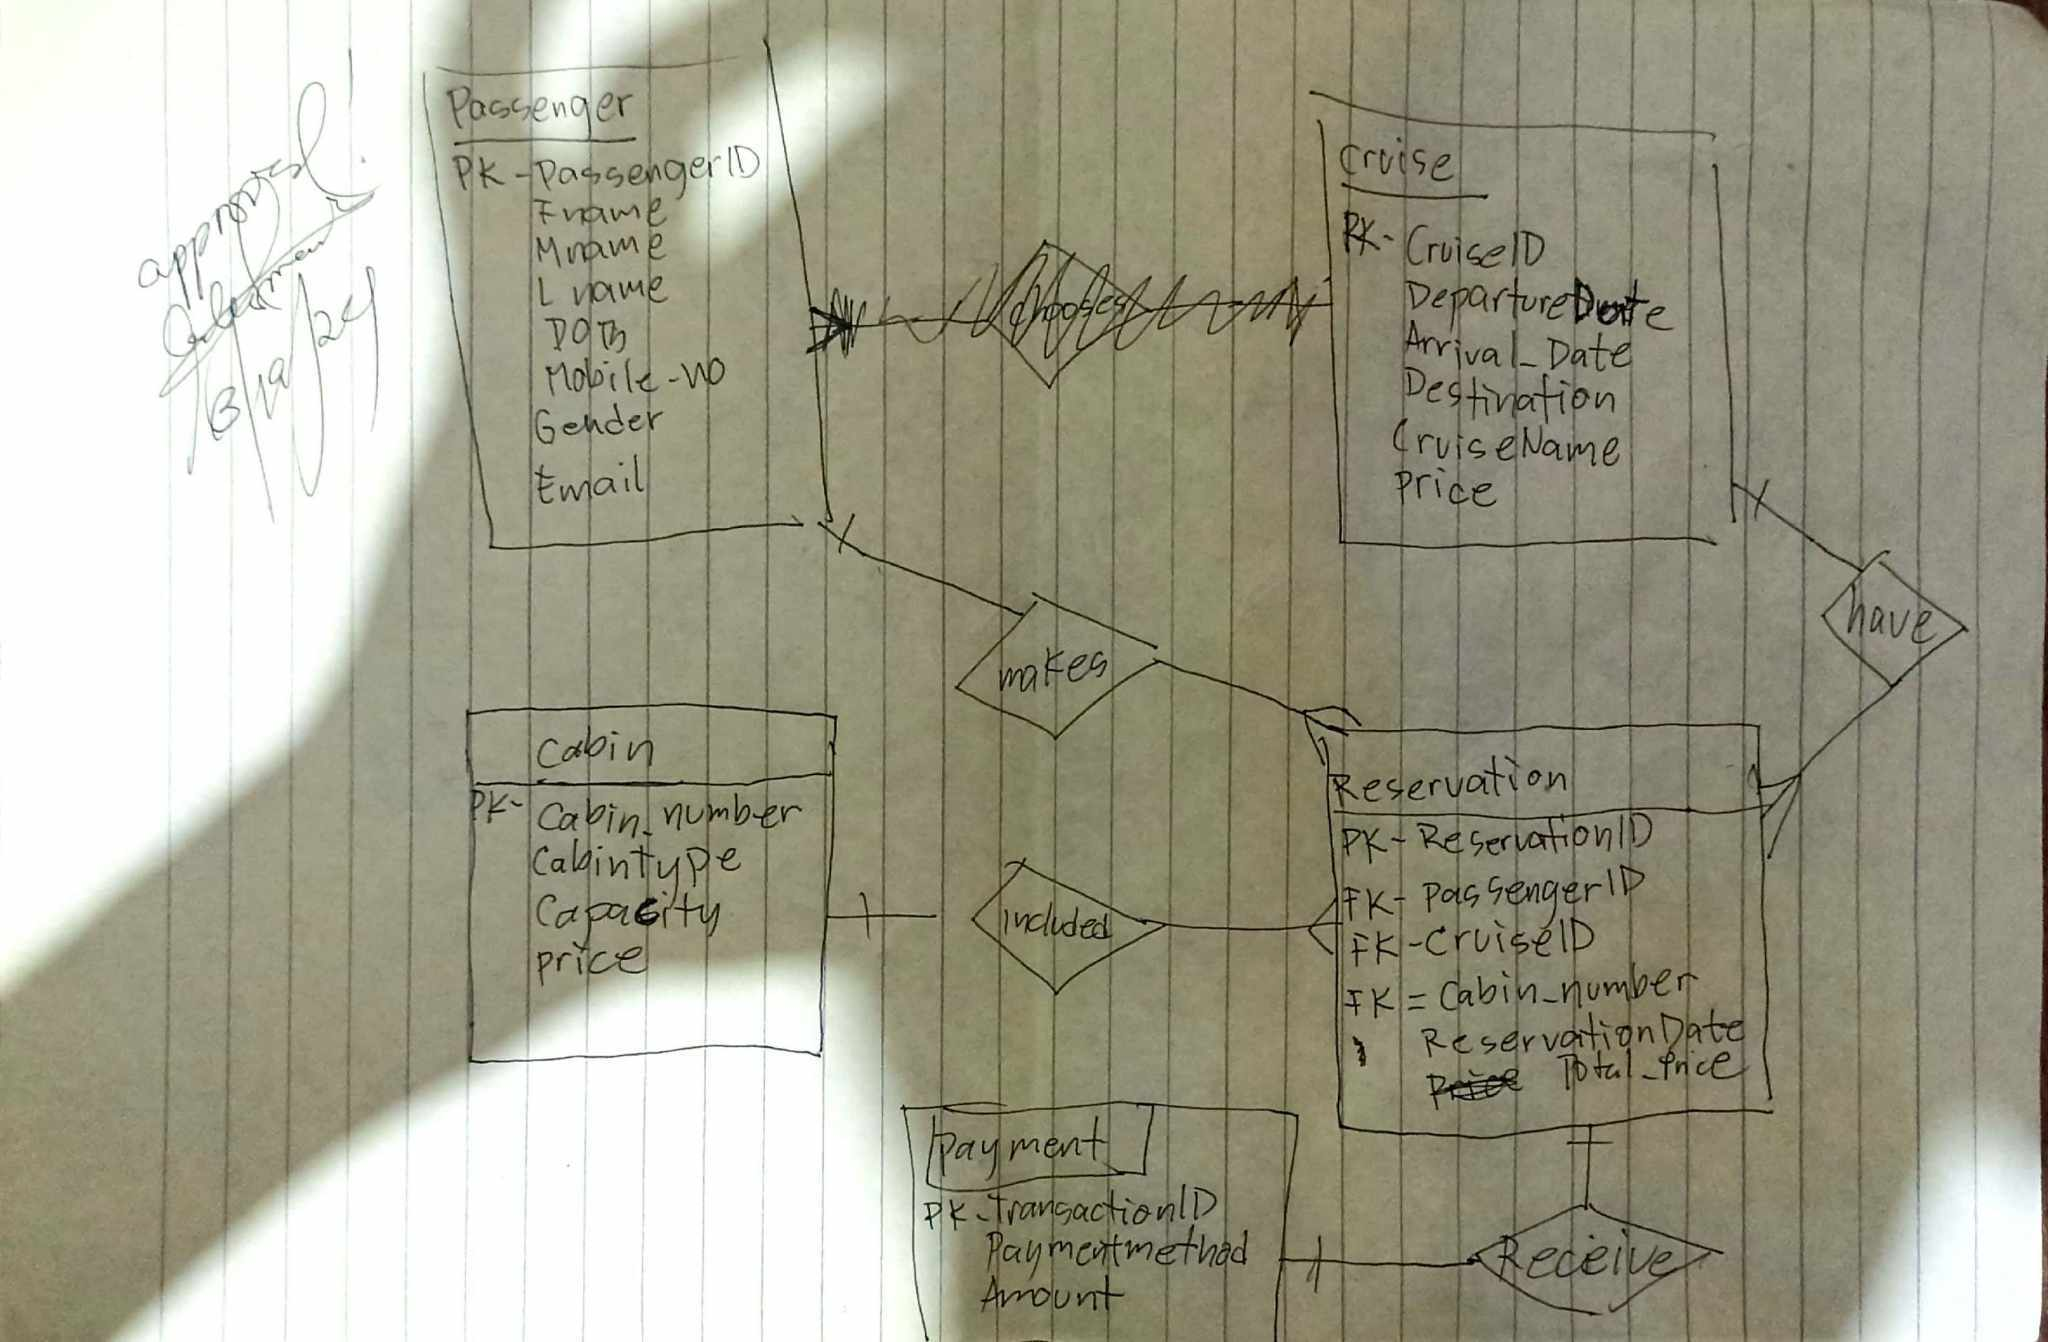 approved!
Passenger
PK-PassengerID
Fname
Mname
Lname
DOB
Mobile-no
Gender
Email
chooses
Cruise
PK-CruiseID
DepartureDate
Arrival_Date
Destination
CruiseName
Price
makes
have
Cabin
PK-Cabin_number
Cabintype
Capacity
price
included
Reservation
PK-ReservationID
FK-PassengerID
FK-CruiseID
FK=Cabin_number
ReservationDate
Price Total_Price
Payment
PK-TransactionID
Paymentmethod
Amount
Receive